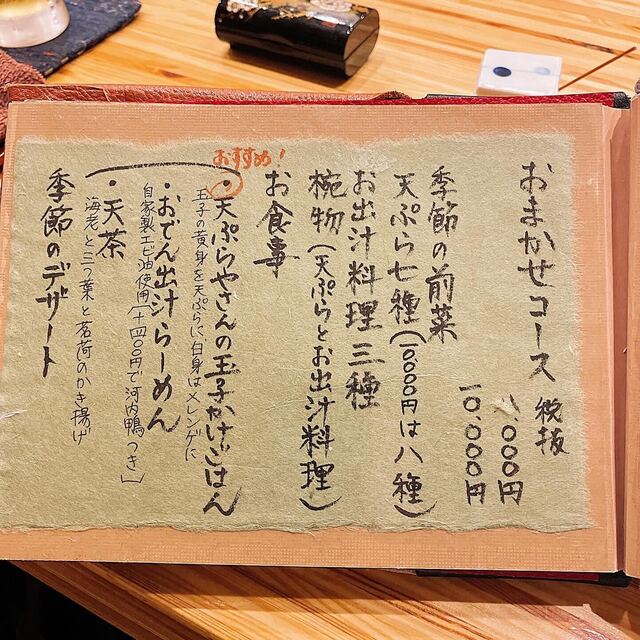 おまかせコース 税抜
八.000円
一0.000円
季節の前菜
天ぷら七種(一0.000円は八種)
お出汁料理三種
椀物(天ぷらとお出汁料理)
お食事
おすすめ!
・天ぷらやさんの玉子かけごはん
玉子の黄身を天ぷらに、白身はメレンゲに
・おでん出汁らーめん
自家製エビ油使用(十四00円で河内鴨つき)
・天茶
海老と三つ葉と茗荷のかき揚げ
季節のデザート